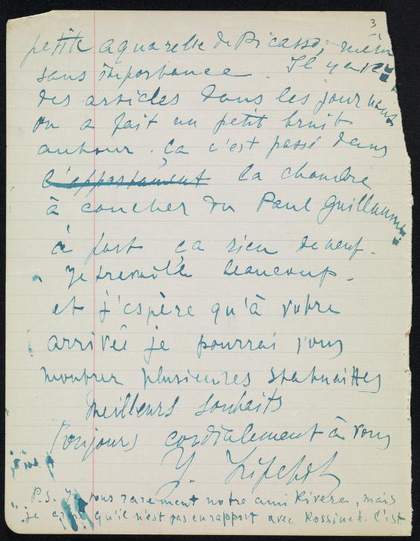 3
petite aquarelle de Picasso, même
sans importance. Il y eu
des articles dans les journaux
on a fait un petit bruit
autour. Ça c'est passé dans
l'appartement la chambre
à coucher du Paul Guillaume
à part ça rien de neuf.
Je travaille beaucoup.
et j'espère qu'à votre
arrivée je pourrai vous
montrer plusieures statuaittes
Meilleurs souhaits
Toujours cordialement à vous
J. Lipchitz
P.S. vous rarement notre ami Rivera, mais
je qu'il n'est pas en rapport avec Rossinet. C'est